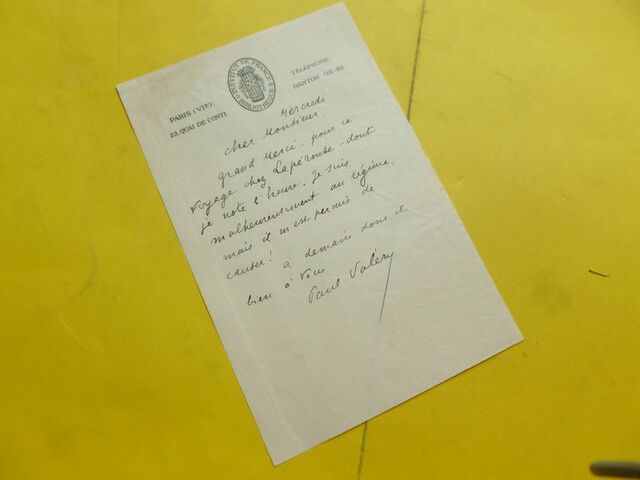 PARIS (VIᵉ):
23, QUAI DE CONTI
INSTITUT DE FRANCE
BIBLIOTHÈQUE
TÉLÉPHONE
DANTON 02-92
Mercredi
Cher Monsieur,
grand Merci pour ce
voyage chez Lapérouse - dont
je note l'heure. Je suis
malheureusement au régime,
mais il m'est permis de
causer!
a demain donc et
bien à vous
Paul Valéry